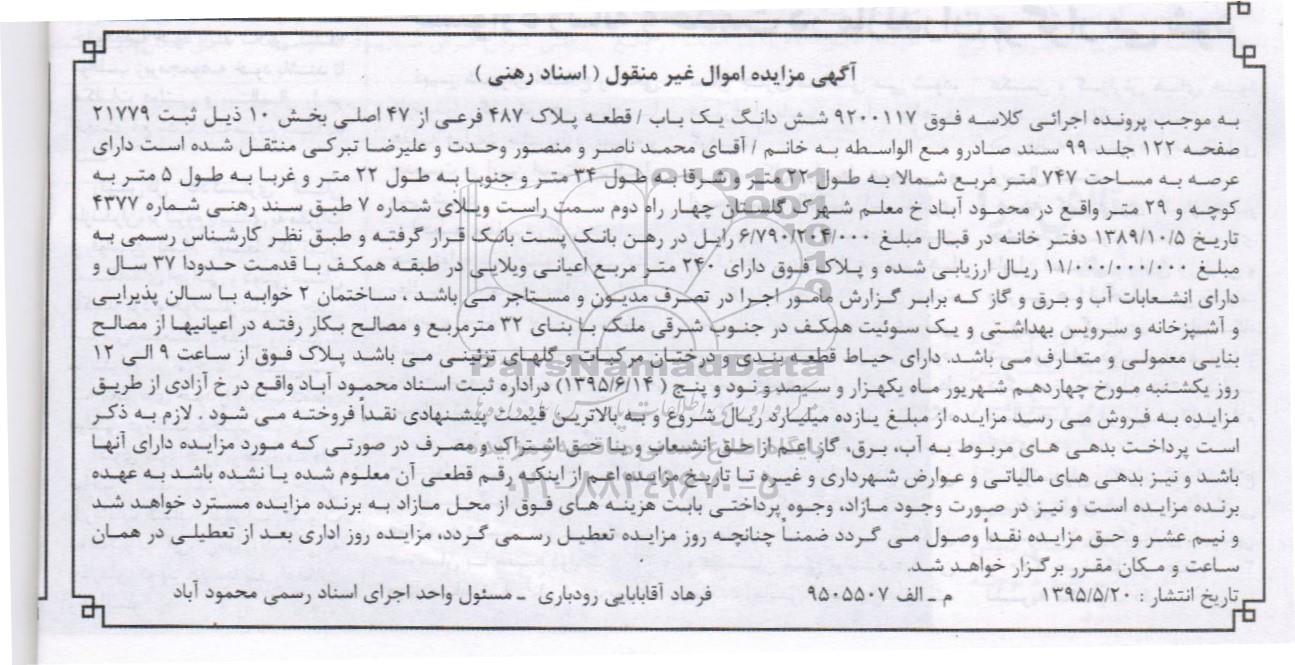 آگهی مزایده اموال غیر منقول ( اسناد رهنی )
به موجب پرونده اجرائی کلاسه فوق ۹۲۰۰۱۱۷ شش دانگ یک باب / قطعه پلاک ۴۸۷ فرعی از ۴۷ اصلی بخش ۱۰ ذیل ثبت ۲۱۷۷۹
صفحه ۱۲۲ جلد ۹۹ سند صادرو مع الواسطه به خانم / آقای محمد ناصر و منصور وحدت و علیرضا تبرکی منتقل شده است دارای
عرصه به مساحت ۷۴۷ متر مربع شمالا به طول ۲۲ متر و شرقا به طول ۳۴ متر و جنوبا به طول ۲۲ متر و غربا به طول ۵ متر به
کوچه و ۲۹ متر واقع در محمود آباد خ معلم شهرک گلستان چهار راه دوم سمت راست ویلای شماره ۷ طبق سند رهنی شماره ۴۳۷۷
تاریخ ۱۳۸۹/۱۰/۵ دفتر خانه در قبال مبلغ ۶/۷۹۰/۲۰۴/۰۰۰ رایل در رهن بانک پست بانک قرار گرفته و طبق نظر کارشناس رسمی به
مبلغ ۱۱/۰۰۰/۰۰۰/۰۰۰ ریال ارزیابی شده و پلاک فوق دارای ۲۴۰ متر مربع اعیانی ویلایی در طبقه همکف با قدمت حدودا ۳۷ سال و
دارای انشعابات آب و برق و گاز که برابر گزارش مامور اجرا در تصرف مدیون و مستاجر می باشد . ساختمان ۲ خوابه با سالن پذیرایی
و آشپزخانه و سرویس بهداشتی و یک سوئیت همکف در جنوب شرقی ملک با بنای ۳۲ مترمربع و مصالح بکار رفته در اعیانیها از مصالح
بنایی معمولی و متعارف می باشد. دارای حیاط قطعه بندی و درختان مرکبات و گلهای تزئینی می باشد پلاک فوق از ساعت ۹ الی ۱۲
روز یکشنبه مورخ چهاردهم شهریور ماه یکهزار و سیصد و نود و پنج ( ۱۳۹۵/۶/۱۴) دراداره ثبت اسناد محمود آباد واقع در خ آزادی از طریق
مزایده به فروش می رسد مزایده از مبلغ یازده میلیارد ریال شروع و به بالاترین قیمت پیشنهادی نقداً فروخته می شود . لازم به ذکر
است پرداخت بدهی های مربوط به آب، برق، گاز اعم از حق انشعاب و یا حق اشتراک و مصرف در صورتی که مورد مزایده دارای آنها
باشد و نیز بدهی های مالیاتی و عوارض شهرداری و غیره تا تاریخ مزایده اعم از اینکه رقم قطعی آن معلوم شده یا نشده باشد به عهده
برنده مزایده است و نیز در صورت وجود مازاد، وجوه پرداختی بابت هزینه های فوق از محل مازاد به برنده مزایده مسترد خواهد شد
و نیم عشر و حق مزایده نقداً وصول می گردد ضمناً چنانچه روز مزایده تعطیل رسمی گردد، مزایده روز اداری بعد از تعطیلی در همان
ساعت و مکان مقرر برگزار خواهد شد.
تاریخ انتشار : ۱۳۹۵/۵/۲۰ م - الف ۹۵۰۵۵۰۷ فرهاد آقابابایی رودباری - مسئول واحد اجرای اسناد رسمی محمود آباد
ParsNamadData
۰۲۱-۸۸۳۴۹۶۷۰-۵